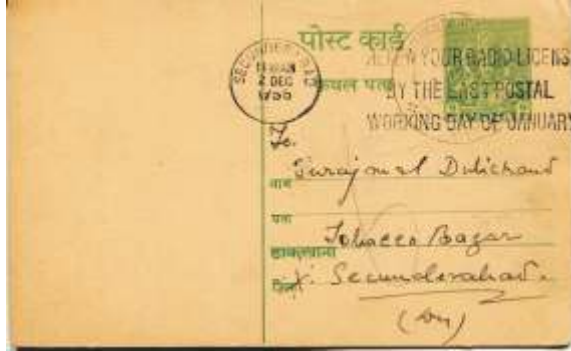 पोस्ट कार्ड
केवल पता
SECUNDERABAD
2 DEC
1955
RENEW YOUR RADIO LICENS
BY THE LAST POSTAL
WORKING DAY OF JANUARY
To.
Surajmal Dulichand
नाम
पता
Tobacco Bazar
डाकखाना
Secunderabad.
जिला
(Dn)